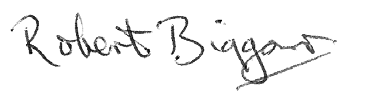 Robert Biggar